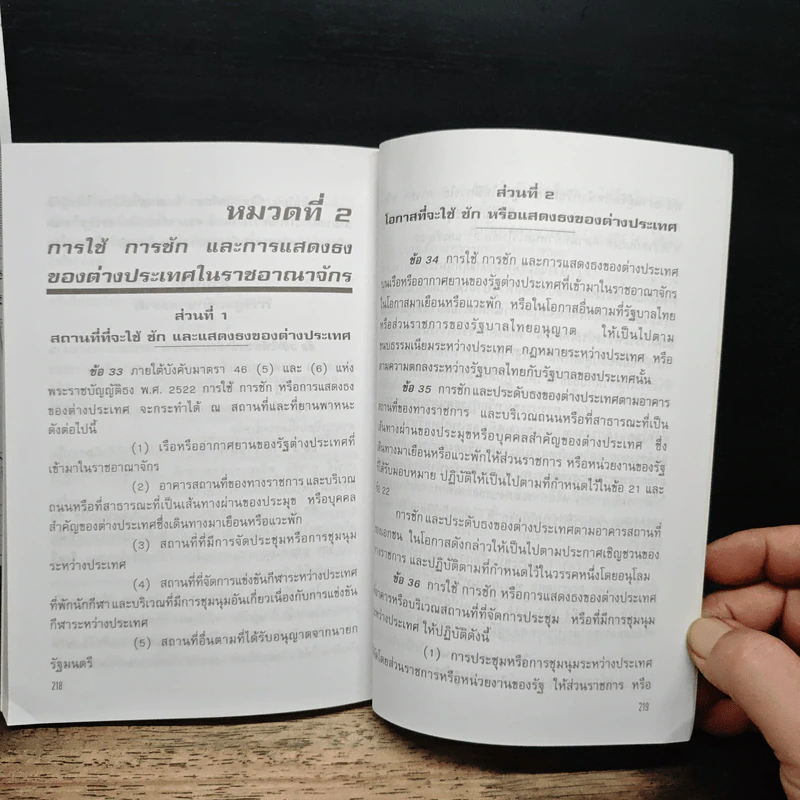 หมวดที่ 2
การใช้ การชัก และการแสดงธง
ของต่างประเทศในราชอาณาจักร
ส่วนที่ 1
สถานที่ที่จะใช้ ชัก และแสดงธงของต่างประเทศ
ข้อ 33 ภายใต้บังคับมาตรา 46 (5) และ (6) แห่ง
พระราชบัญญัติธง พ.ศ. 2522 การใช้ การชัก หรือการแสดงธง
ของต่างประเทศ จะกระทำได้ ณ สถานที่และที่ยานพาหนะ
ดังต่อไปนี้
(1) เรือหรืออากาศยานของรัฐต่างประเทศที่
เข้ามาในราชอาณาจักร
(2) อาคารสถานที่ของทางราชการและบริเวณ
ถนนหรือที่สาธารณะที่เป็นเส้นทางผ่านของประมุข หรือบุคคล
สำคัญของต่างประเทศซึ่งเดินทางมาเยือนหรือแวะพัก
(3) สถานที่ที่มีการจัดประชุมหรือการชุมนุม
ระหว่างประเทศ
(4) สถานที่ที่จัดการแข่งขันกีฬาระหว่างประเทศ
ที่พักนักกีฬา และบริเวณที่มีการชุมนุมอันเกี่ยวเนื่องกับการแข่งขัน
กีฬาระหว่างประเทศ
(5) สถานที่อื่นตามที่ได้รับอนุญาตจากนายก
รัฐมนตรี
218
ส่วนที่ 2
โอกาสที่จะใช้ ชัก หรือแสดงธงของต่างประเทศ
ข้อ 34 การใช้ การชัก และการแสดงธงของต่างประเทศ
บนเรือหรืออากาศยานของรัฐต่างประเทศที่เข้ามาในราชอาณาจักร
ในโอกาสมาเยือนหรือแวะพัก หรือในโอกาสอื่นที่รัฐบาลไทย
หรือส่วนราชการของรัฐบาลไทยอนุญาต ให้เป็นไปตาม
ขนบธรรมเนียมระหว่างประเทศ กฎหมายระหว่างประเทศ หรือ
ตามความตกลงระหว่างรัฐบาลไทยกับรัฐบาลของประเทศนั้น
ข้อ 35 การชักและประดับธงของต่างประเทศตามอาคาร
สถานที่ของทางราชการ และบริเวณถนนหรือที่สาธารณะที่เป็น
เส้นทางผ่านของประมุขหรือบุคคลสำคัญของต่างประเทศ ซึ่ง
เดินทางมาเยือนหรือแวะพักให้ส่วนราชการ หรือหน่วยงานของรัฐ
ที่ได้รับมอบหมาย ปฏิบัติให้เป็นไปตามที่กำหนดไว้ในข้อ 21 และ
ข้อ 22
การชักและประดับธงของต่างประเทศตามอาคารสถานที่
ของเอกชน ในโอกาสดังกล่าวให้เป็นไปตามประกาศเชิญชวนของ
ทางราชการ และปฏิบัติตามที่กำหนดไว้ในวรรคหนึ่งโดยอนุโลม
ข้อ 36 การใช้ การชัก หรือการแสดงธงของต่างประเทศ
ที่อาคารหรือบริเวณสถานที่ที่จัดการประชุม หรือที่มีการชุมนุม
ระหว่างประเทศ ให้ปฏิบัติดังนี้
(1) การประชุมหรือการชุมนุมระหว่างประเทศ
จัดโดยส่วนราชการหรือหน่วยงานของรัฐ ให้ส่วนราชการ หรือ
219